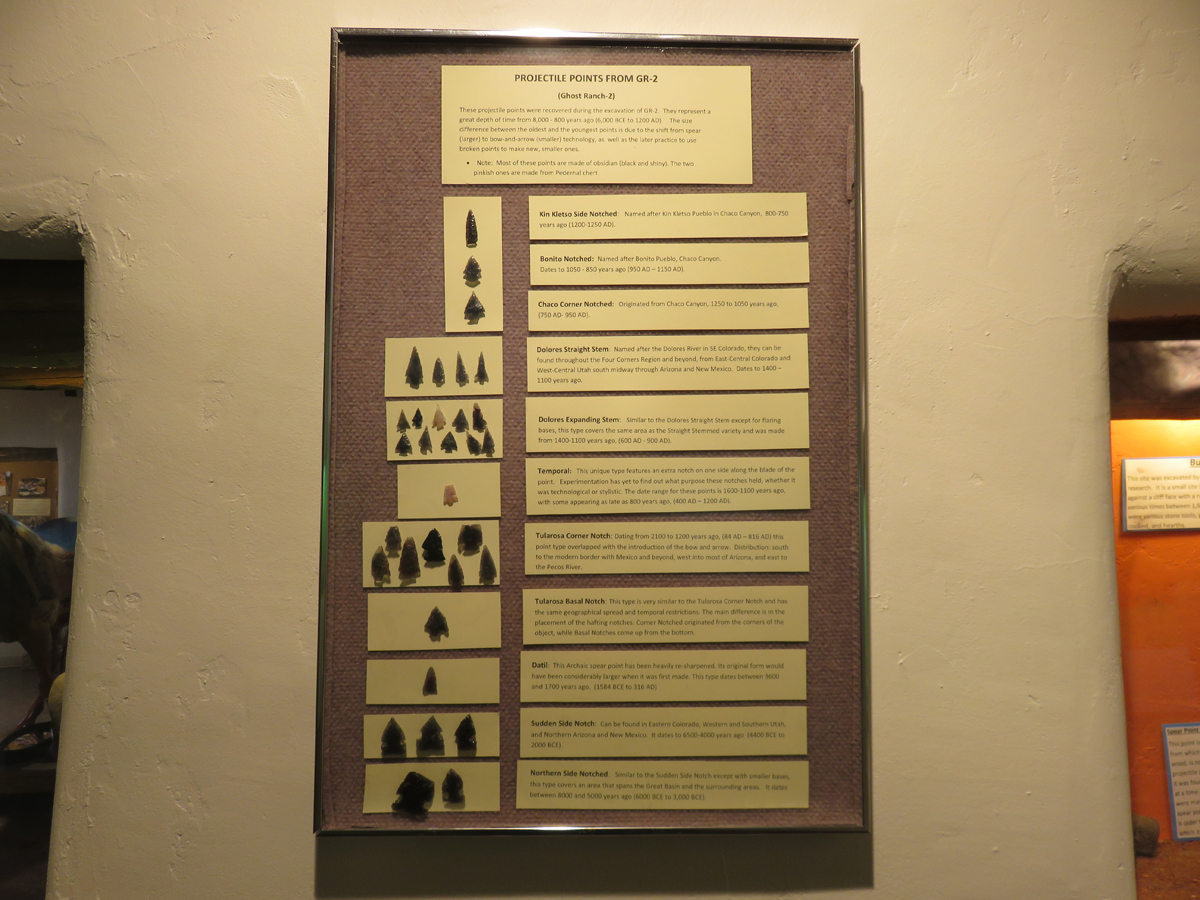 PROJECTILE POINTS FROM GR-2
(Ghost Ranch-2)
These projectile points were recovered during the excavation of GR-2. They represent a
great depth of time from 8,000 - 800 years ago (6,000 BCE to 1200 AD). The size
difference between the oldest and the youngest points is due to the shift from spear
(larger) to bow-and-arrow (smaller) technology, as well as the later practice to use
broken points to make new, smaller ones.
• Note: Most of these points are made of obsidian (black and shiny). The two
pinkish ones are made from Pedernal chert.
Kin Kletso Side Notched: Named after Kin Kletso Pueblo in Chaco Canyon, 800-750
years ago (1200-1250 AD).
Bonito Notched: Named after Bonito Pueblo, Chaco Canyon.
Dates to 1050 - 850 years ago (950 AD – 1150 AD).
Chaco Corner Notched: Originated from Chaco Canyon, 1250 to 1050 years ago.
(750 AD- 950 AD).
Dolores Straight Stem: Named after the Dolores River in SE Colorado, they can be
found throughout the Four Corners Region and beyond, from East-Central Colorado and
West-Central Utah south midway through Arizona and New Mexico. Dates to 1400 –
1100 years ago.
Dolores Expanding Stem: Similar to the Dolores Straight Stem except for flaring
bases, this type covers the same area as the Straight Stemmed variety and was made
from 1400-1100 years ago, (600 AD - 900 AD).
Temporal: This unique type features an extra notch on one side along the blade of the
point. Experimentation has yet to find out what purpose these notches held, whether it
was technological or stylistic. The date range for these points is 1600-1100 years ago,
with some appearing as late as 800 years ago, (400 AD – 1200 AD).
Tularosa Corner Notch: Dating from 2100 to 1200 years ago, (84 AD – 816 AD) this
point type overlapped with the introduction of the bow and arrow. Distribution: south
to the modern border with Mexico and beyond, west into most of Arizona, and east to
the Pecos River.
Tularosa Basal Notch: This type is very similar to the Tularosa Corner Notch and has
the same geographical spread and temporal restrictions. The main difference is in the
placement of the hafting notches: Corner Notched originated from the corners of the
object, while Basal Notches come up from the bottom.
Datil: This Archaic spear point has been heavily re-sharpened. Its original form would
have been considerably larger when it was first made. This type dates between 3600
and 1700 years ago. (1584 BCE to 316 AD)
Sudden Side Notch: Can be found in Eastern Colorado, Western and Southern Utah,
and Northern Arizona and New Mexico. It dates to 6500-4000 years ago (4400 BCE to
2000 BCE).
Northern Side Notched: Similar to the Sudden Side Notch except with smaller bases,
this type covers an area that spans the Great Basin and the surrounding areas. It dates
between 8000 and 5000 years ago (6000 BCE to 3,000 BCE).
Bu
This site was excavated by
research. It is a small site
against a cliff face with a
various times between
Spear Point
This point
from which